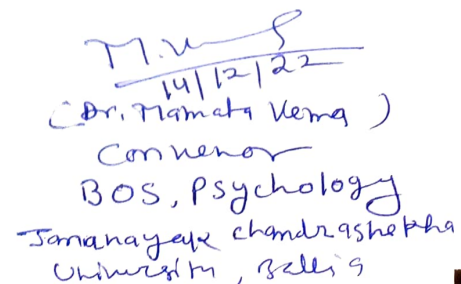 14/12/22
(Dr. Mamata Verma)
Convenor
BOS, Psychology
Jananayak Chandrashekha
University, Ballia